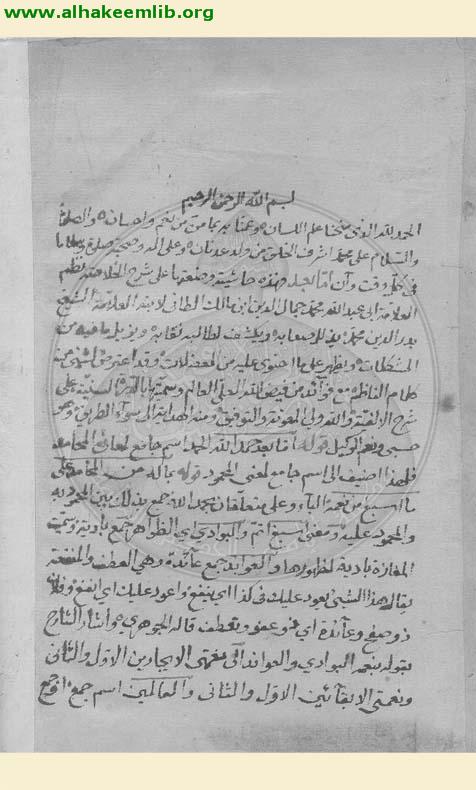 www.alhakeemlib.org
بسم الله الرحمن الرحيم
الحمد لله الذي منحنا علم اللسان وعنا به بما من من نعم واحسان والصلاة
والسلام على محمد اشرف الخلق من ولد عدنان وعلى اله وصحبه صلاة وسلاما
في كل وقت وآن اما بعد فهذه حاشية وضعتها على شرح الخلاصة نظم
العلامة ابى عبد الله محمد جمال الدين ابن مالك الطائى لابنه العلامة الشيخ
بدر الدين محمد يذلل صعابه ويكشف لطالبه نقابه ويزيل ما فيه من
المشكلات ويظهر على ما احتوى عليه من المعضلات وقد اعترض اشيئ من
كلام الناظم مع فوائد من فيض الله العلى العالم وسميتها بالدرة السنية على
شرح الالفية والله ولى المعونة والتوفيق ومنه الهداية الى سواء الطريق وهو
حسبي ونعم الوكيل قوله اما بعد حمد الله الحمد اسم جامع لمعانى المحامد
فلهذا اضيف الى اسم جامع لمعنى المحمود قوله بما له من المحامد على
ما اسبغ من نعمه الباء وعلى متعلقان بحمد الله جمع بذلك بين المحمود به
والمحمود عليه ومعنى اسبغ اتم والبوادي اي الظواهر جمع بادية وسميت
المفازة بادية لظهورها والعوائد جمع عائدة وهي العطف والمنفعة
يقال هذا الشئ اعود عليك فى كذا اي انفع واعود عليك اي انفع وفلان
ذو صفح وعائدة اي ذو عفو وتعطف قاله الجوهري واشار الشارح
بقوله بنعمه البوادي والعوائد الى نعمتى الايجادين الاول والثانى
ونعمتى الابقائين الاول والثانى والعالمين اسم جمع او جمع